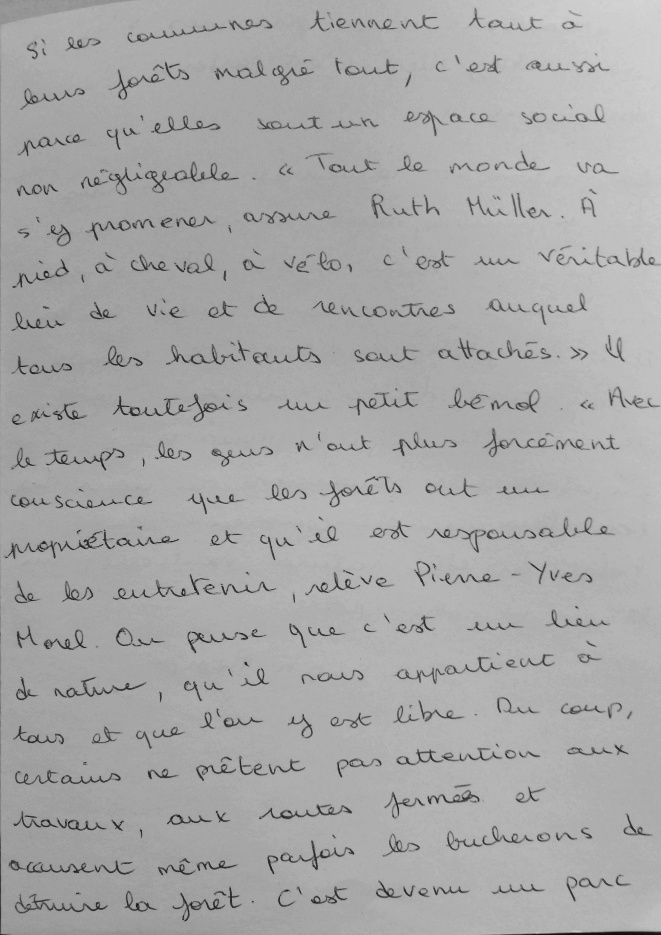 Si les communes tiennent tant à
leurs forêts malgré tout, c'est aussi
parce qu'elles sont un espace social
non négligeable. « Tout le monde va
s'y promener, assure Ruth Müller. À
pied, à cheval, à vélo, c'est un véritable
lieu de vie et de rencontres auquel
tous les habitants sont attachés. » Il
existe toutefois un petit bémol. « Avec
le temps, les gens n'ont plus forcément
conscience que les forêts ont un
propriétaire et qu'il est responsable
de les entretenir, relève Pierre-Yves
Morel. On pense que c'est un lieu
de nature, qu'il nous appartient à
tous et que l'on y est libre. Du coup,
certains ne prêtent pas attention aux
travaux, aux routes fermées et
accusent même parfois les bucherons de
détruire la forêt. C'est devenu un parc